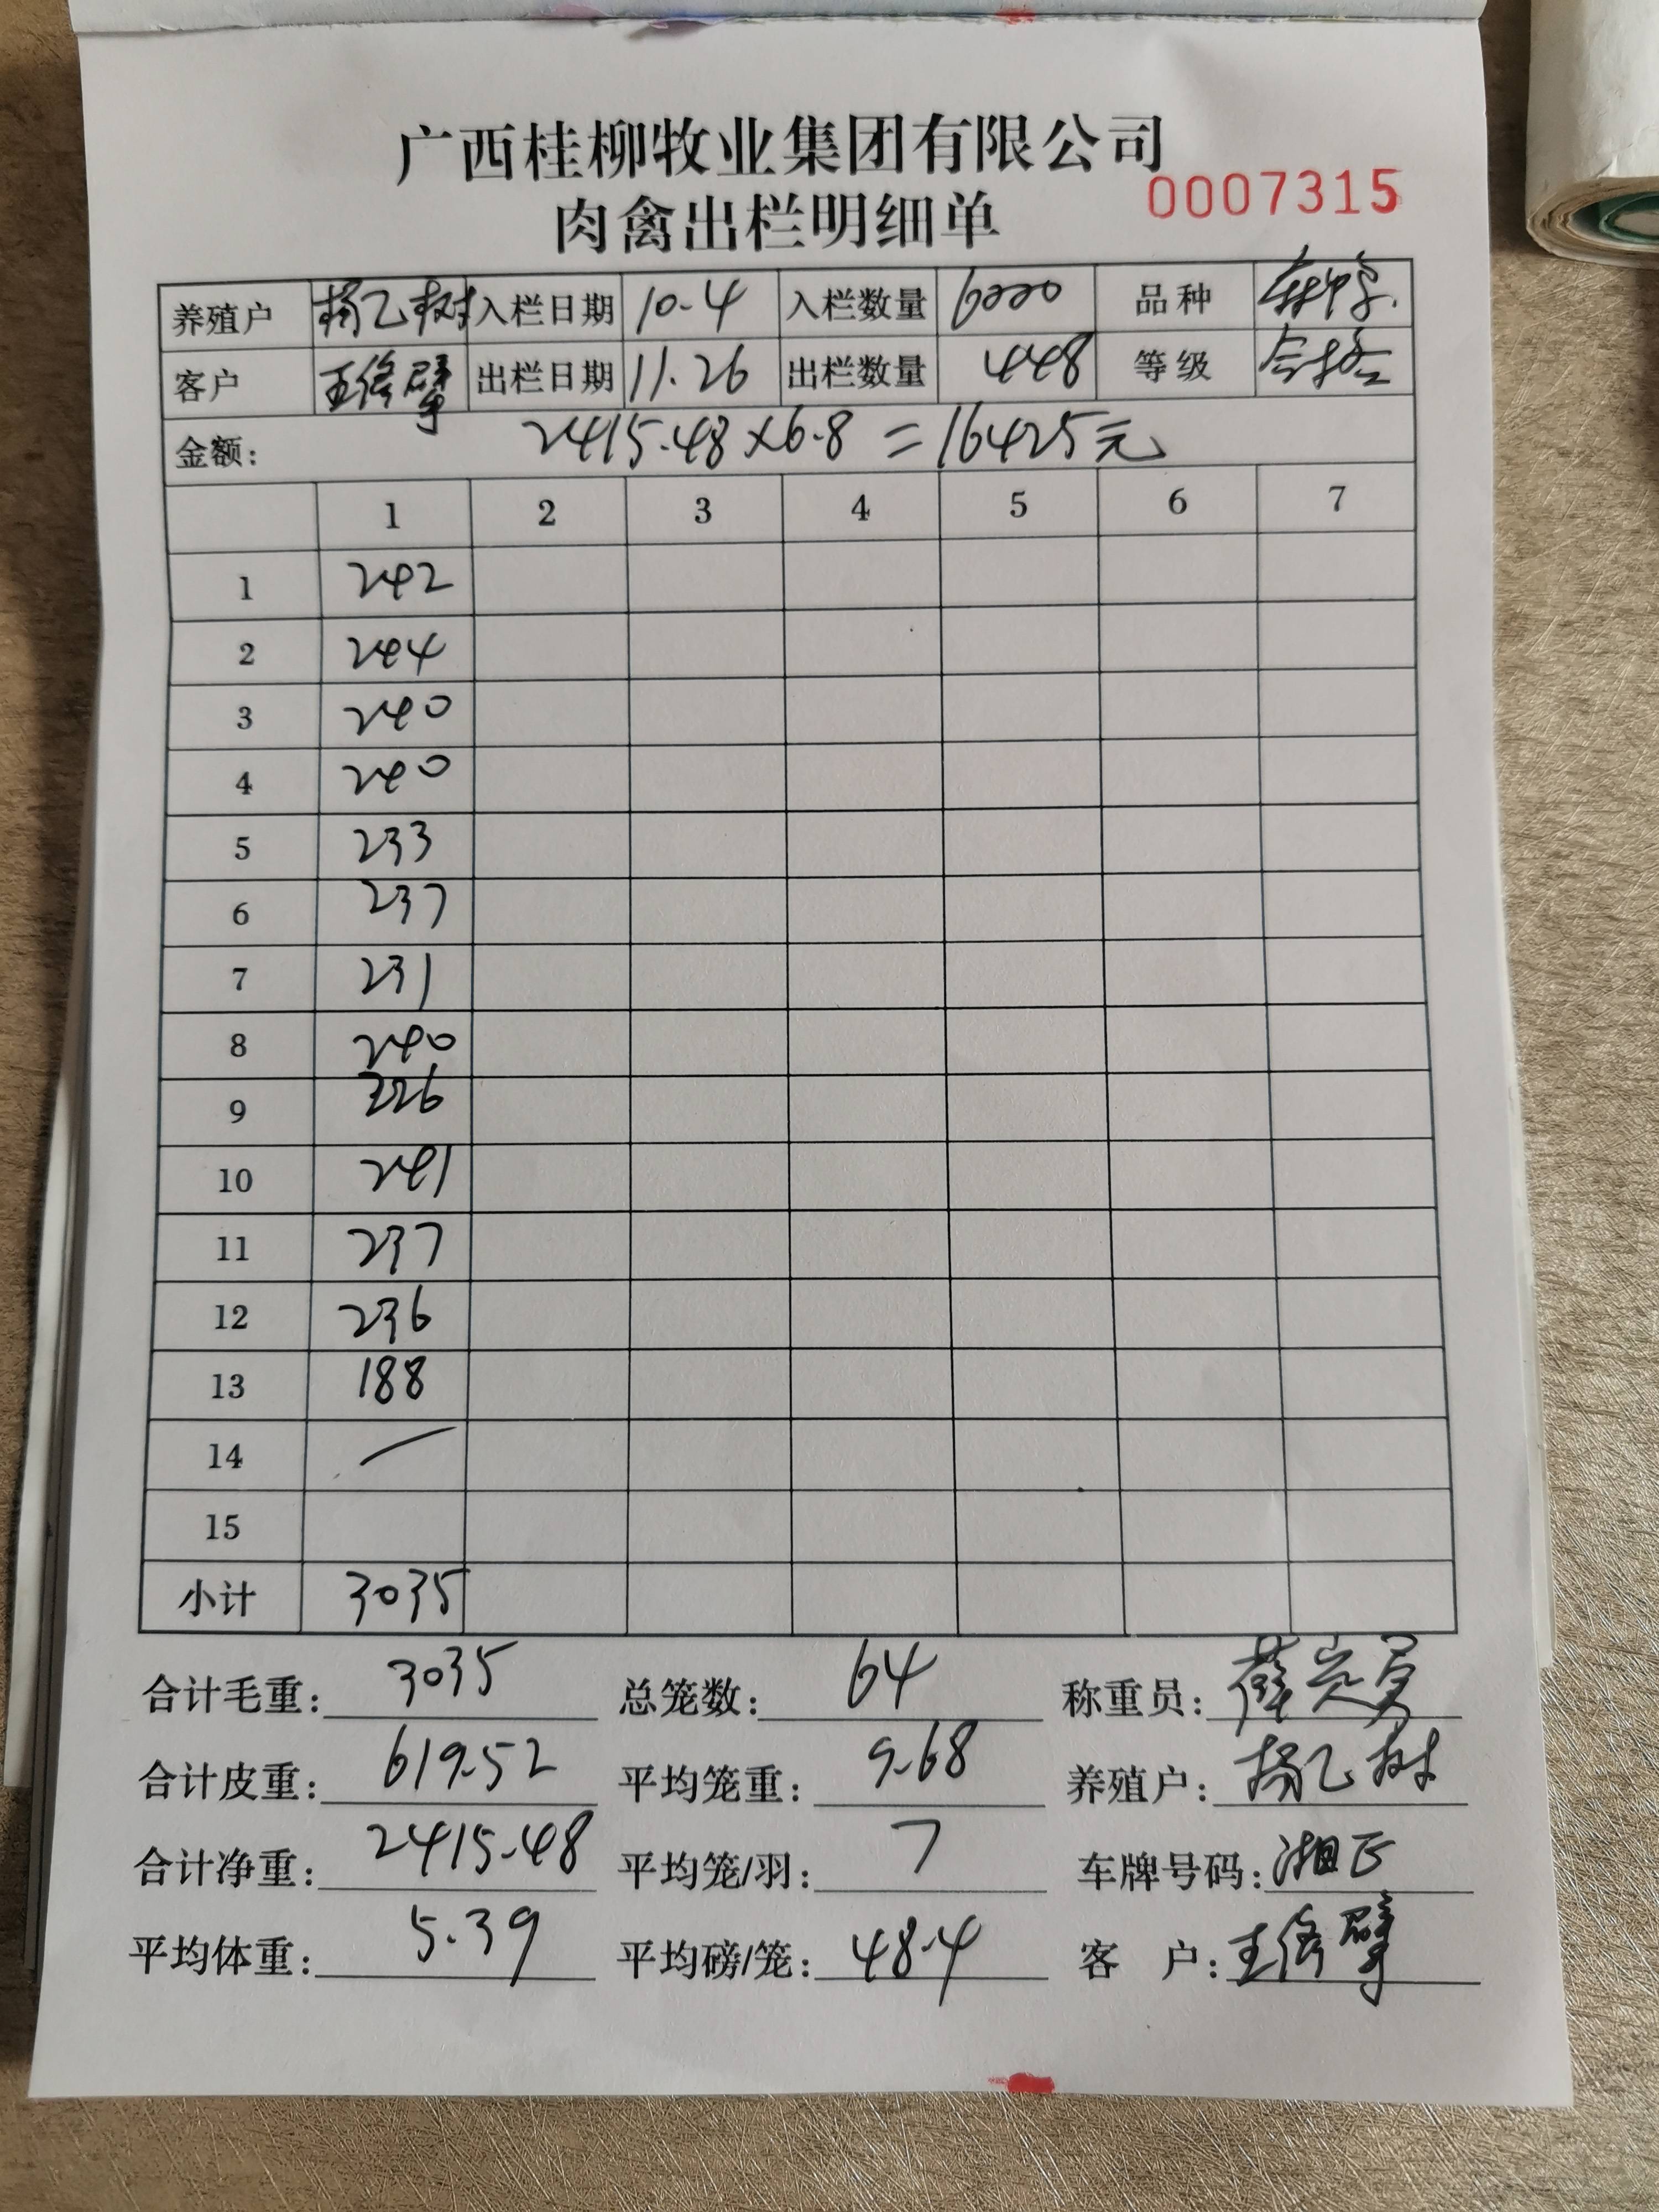 广西桂柳牧业集团有限公司
肉禽出栏明细单 0007315
养殖户 杨乙树 入栏日期 10-4 入栏数量 6000 品种
客户 出栏日期 11.26 出栏数量 448 等级
金额: 2415.48×6.8=16425元
1 2 3 4 5 6 7
1 242
2 244
3 240
4 240
5 233
6 237
7 231
8 240
9 226
10 241
11 237
12 236
13 188
14
15
小计 3035
合计毛重: 3035 总笼数: 64 称重员:
合计皮重: 619.52 平均笼重: 9.68 养殖户: 杨乙树
合计净重: 2415.48 平均笼/羽: 7 车牌号码:
平均体重: 5.39 平均磅/笼: 48.4 客 户: